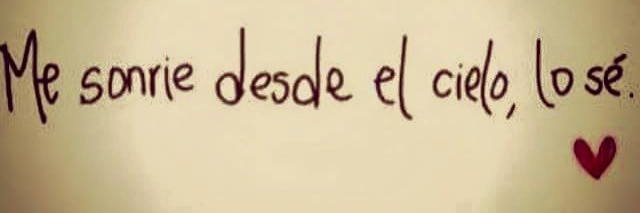 Me sonrie desde el cielo, lo sé.